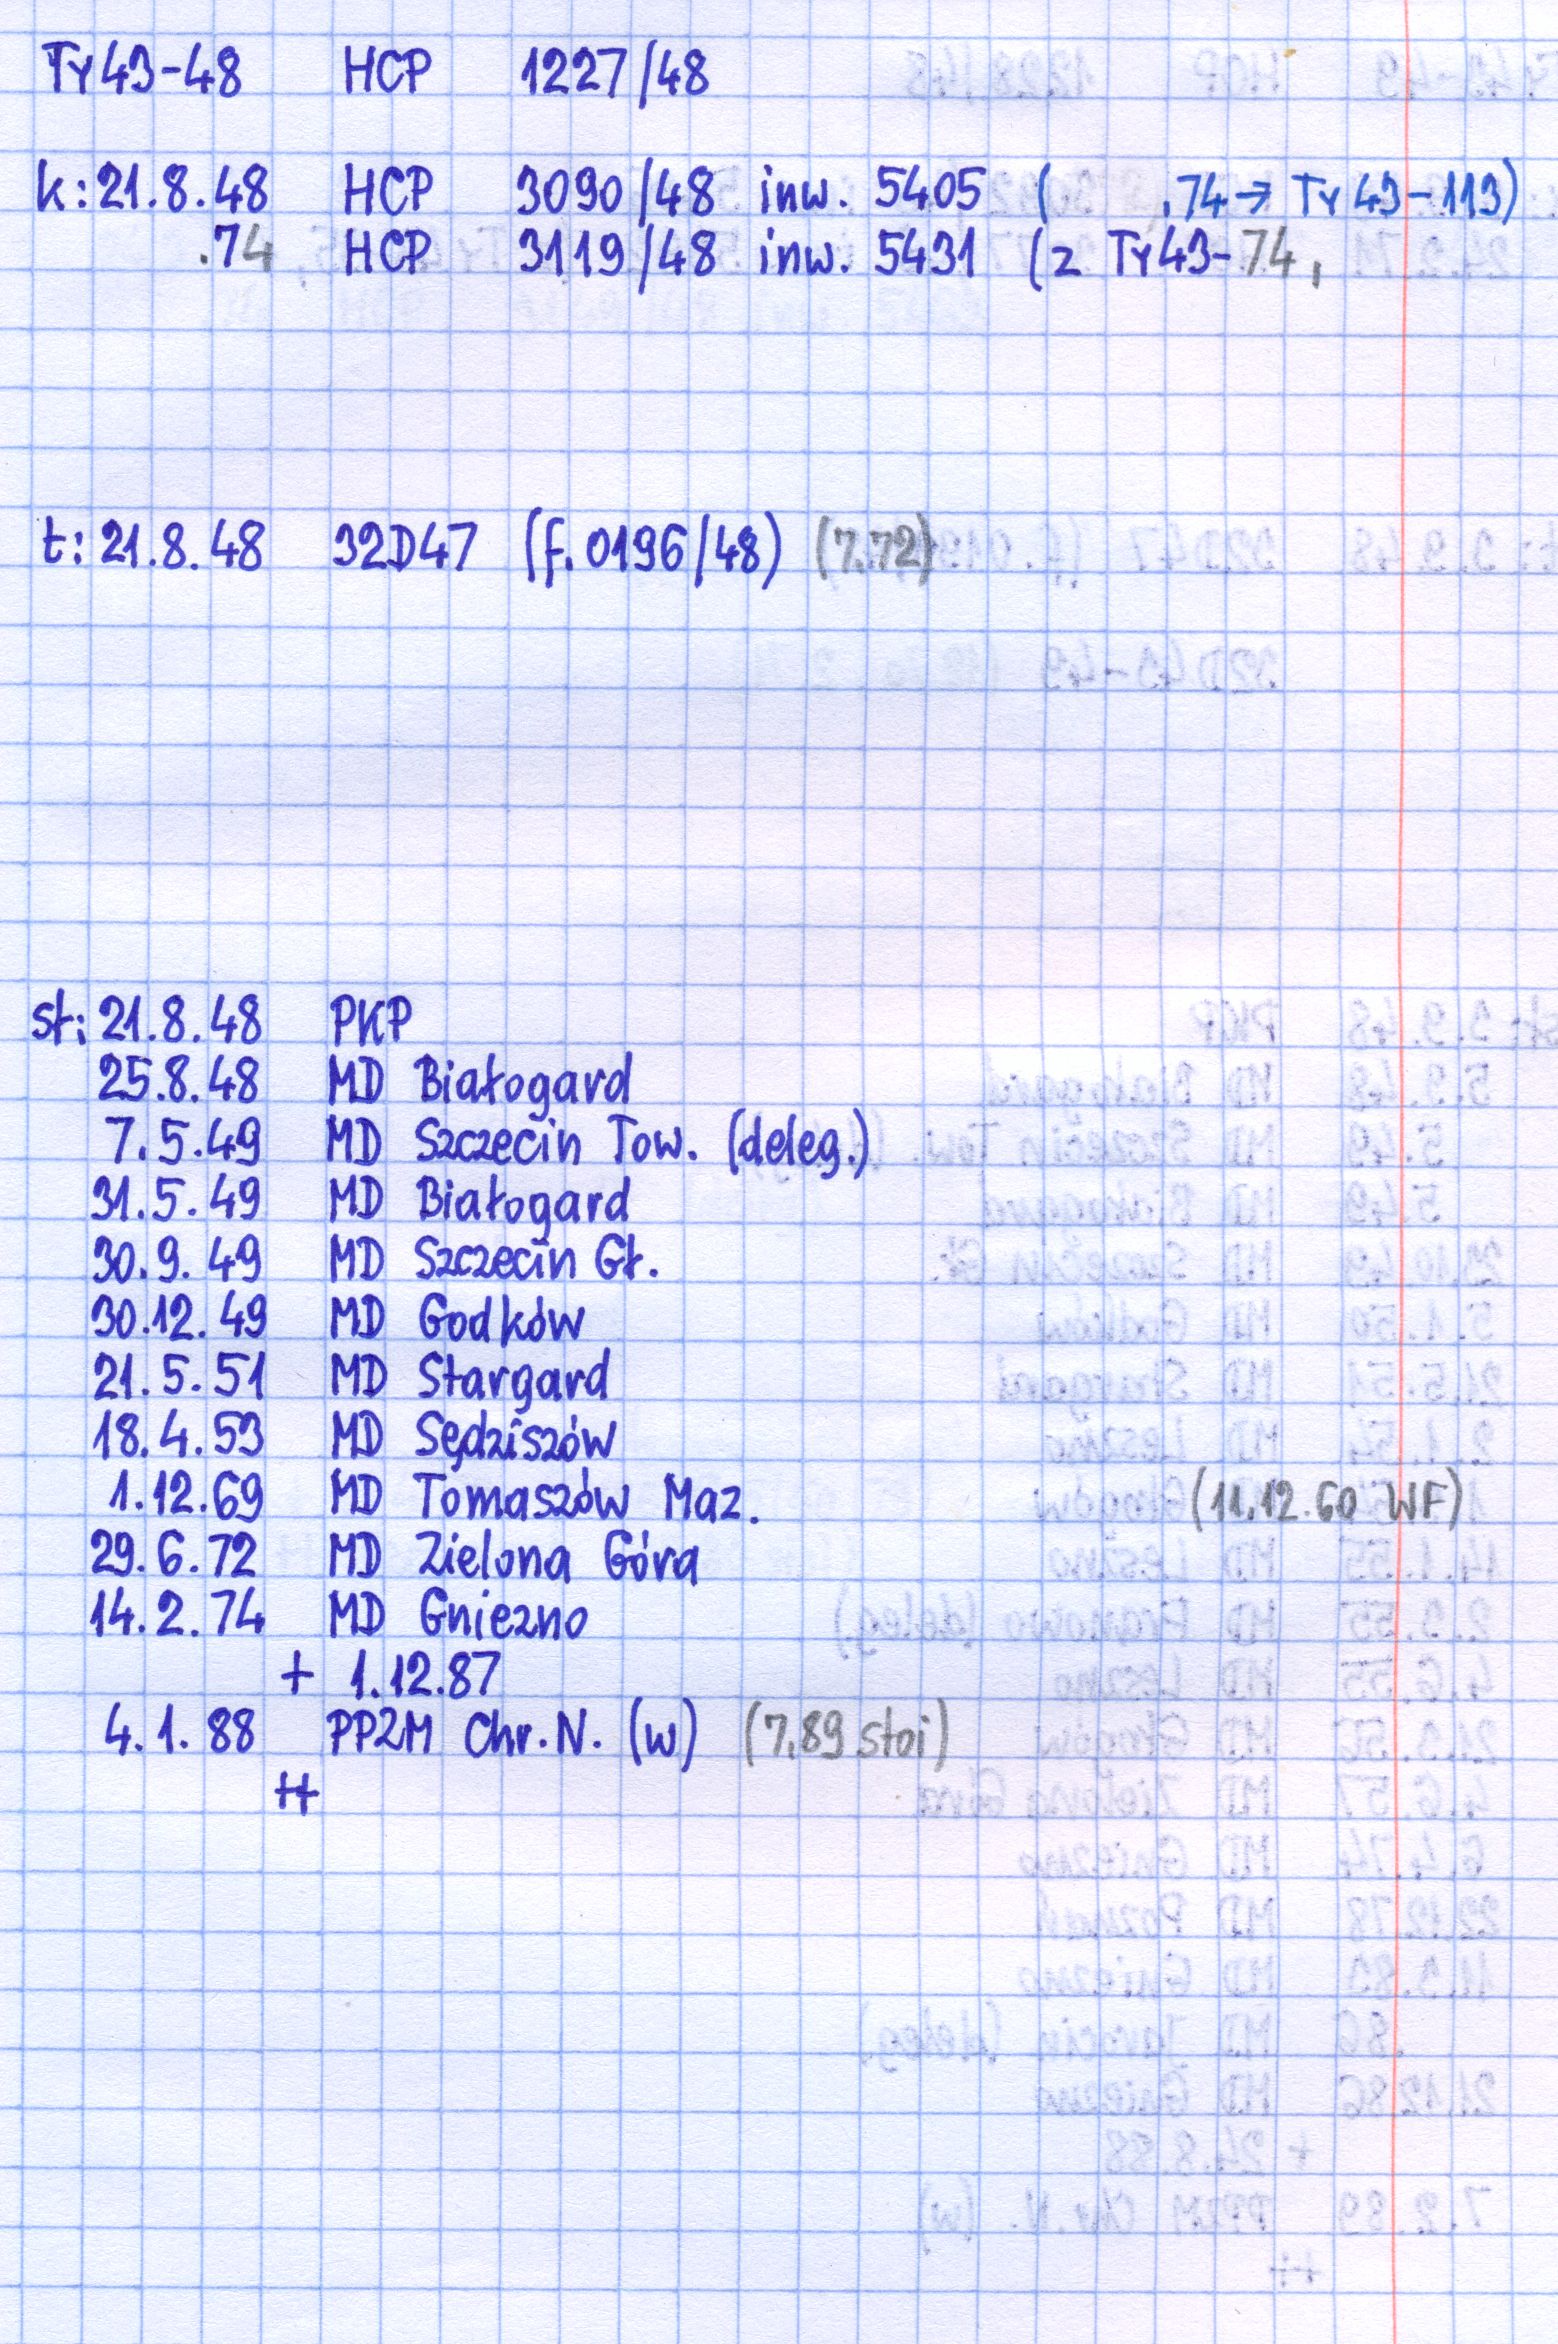 Ty43-48 HCP 1227/48
k: 21.8.48 HCP 3090/48 inw. 5405 ( .74 → Ty43-113)
.74 HCP 3119/48 inw. 5431 (z Ty43-74,
t: 21.8.48 32D47 (f. 0196/48) (7.72)
st: 21.8.48 PKP
25.8.48 MD Białogard
7.5.49 MD Szczecin Tow. (deleg.)
31.5.49 MD Białogard
30.9.49 MD Szczecin Gł.
30.12.49 MD Godków
21.5.51 MD Stargard
18.4.53 MD Sędziszów
1.12.69 MD Tomaszów Maz. (11.12.60 WF)
29.6.72 MD Zielona Góra
14.2.74 MD Gniezno
+ 1.12.87
4.1.88 PPZM Chr. N. (w) (7.89 stoi)
++